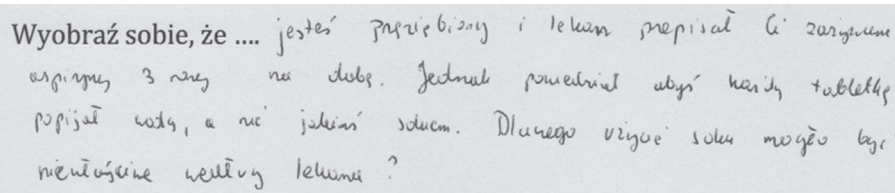 Wyobraź sobie, że .... jesteś przeziębiony i lekarz przepisał Ci zażywanie
aspiryny 3 razy na dobę. Jednak powiedział abyś każdą tabletkę
popijał wodą, a nie jakimś sokiem. Dlaczego użycie soku mogło być
niewłaściwe według lekarza?